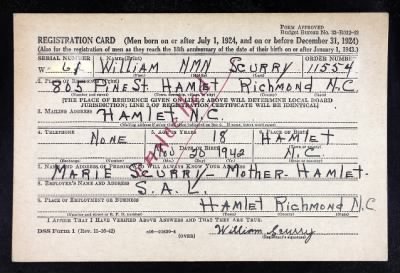 FORM APPROVED
Budget Bureau No. 33-R012-42
REGISTRATION CARD (Men born on or after July 1, 1924, and on or before December 31, 1924)
(Also for the registration of men as they reach the 18th anniversary of the date of their birth on or after January 1, 1943.)
SERIAL NUMBER 1. NAME (Print) ORDER NUMBER
W- 61 William NMN Scurry 11554
(First) (Middle) (Last)
2. PLACE OF RESIDENCE (Print)
805 Pine St. Hamlet Richmond N.C.
[THE PLACE OF RESIDENCE GIVEN ON LINE 2 ABOVE WILL DETERMINE LOCAL BOARD
JURISDICTION; LINE 2 OF REGISTRATION CERTIFICATE WILL BE IDENTICAL]
3. MAILING ADDRESS
Hamlet N.C.
4. TELEPHONE 5. AGE IN YEARS 6. PLACE OF BIRTH
None 18 Hamlet
DATE OF BIRTH
Nov 20 1942 N.C.
7. NAME AND ADDRESS OF PERSON WHO WILL ALWAYS KNOW YOUR ADDRESS
Marie Scurry - Mother - Hamlet
8. EMPLOYER'S NAME AND ADDRESS
S. A. L.
9. PLACE OF EMPLOYMENT OR BUSINESS
Hamlet Richmond N.C
I AFFIRM THAT I HAVE VERIFIED ABOVE ANSWERS AND THAT THEY ARE TRUE.
DSS Form 1 (Rev. 11-16-42) (OVER)
William Scurry